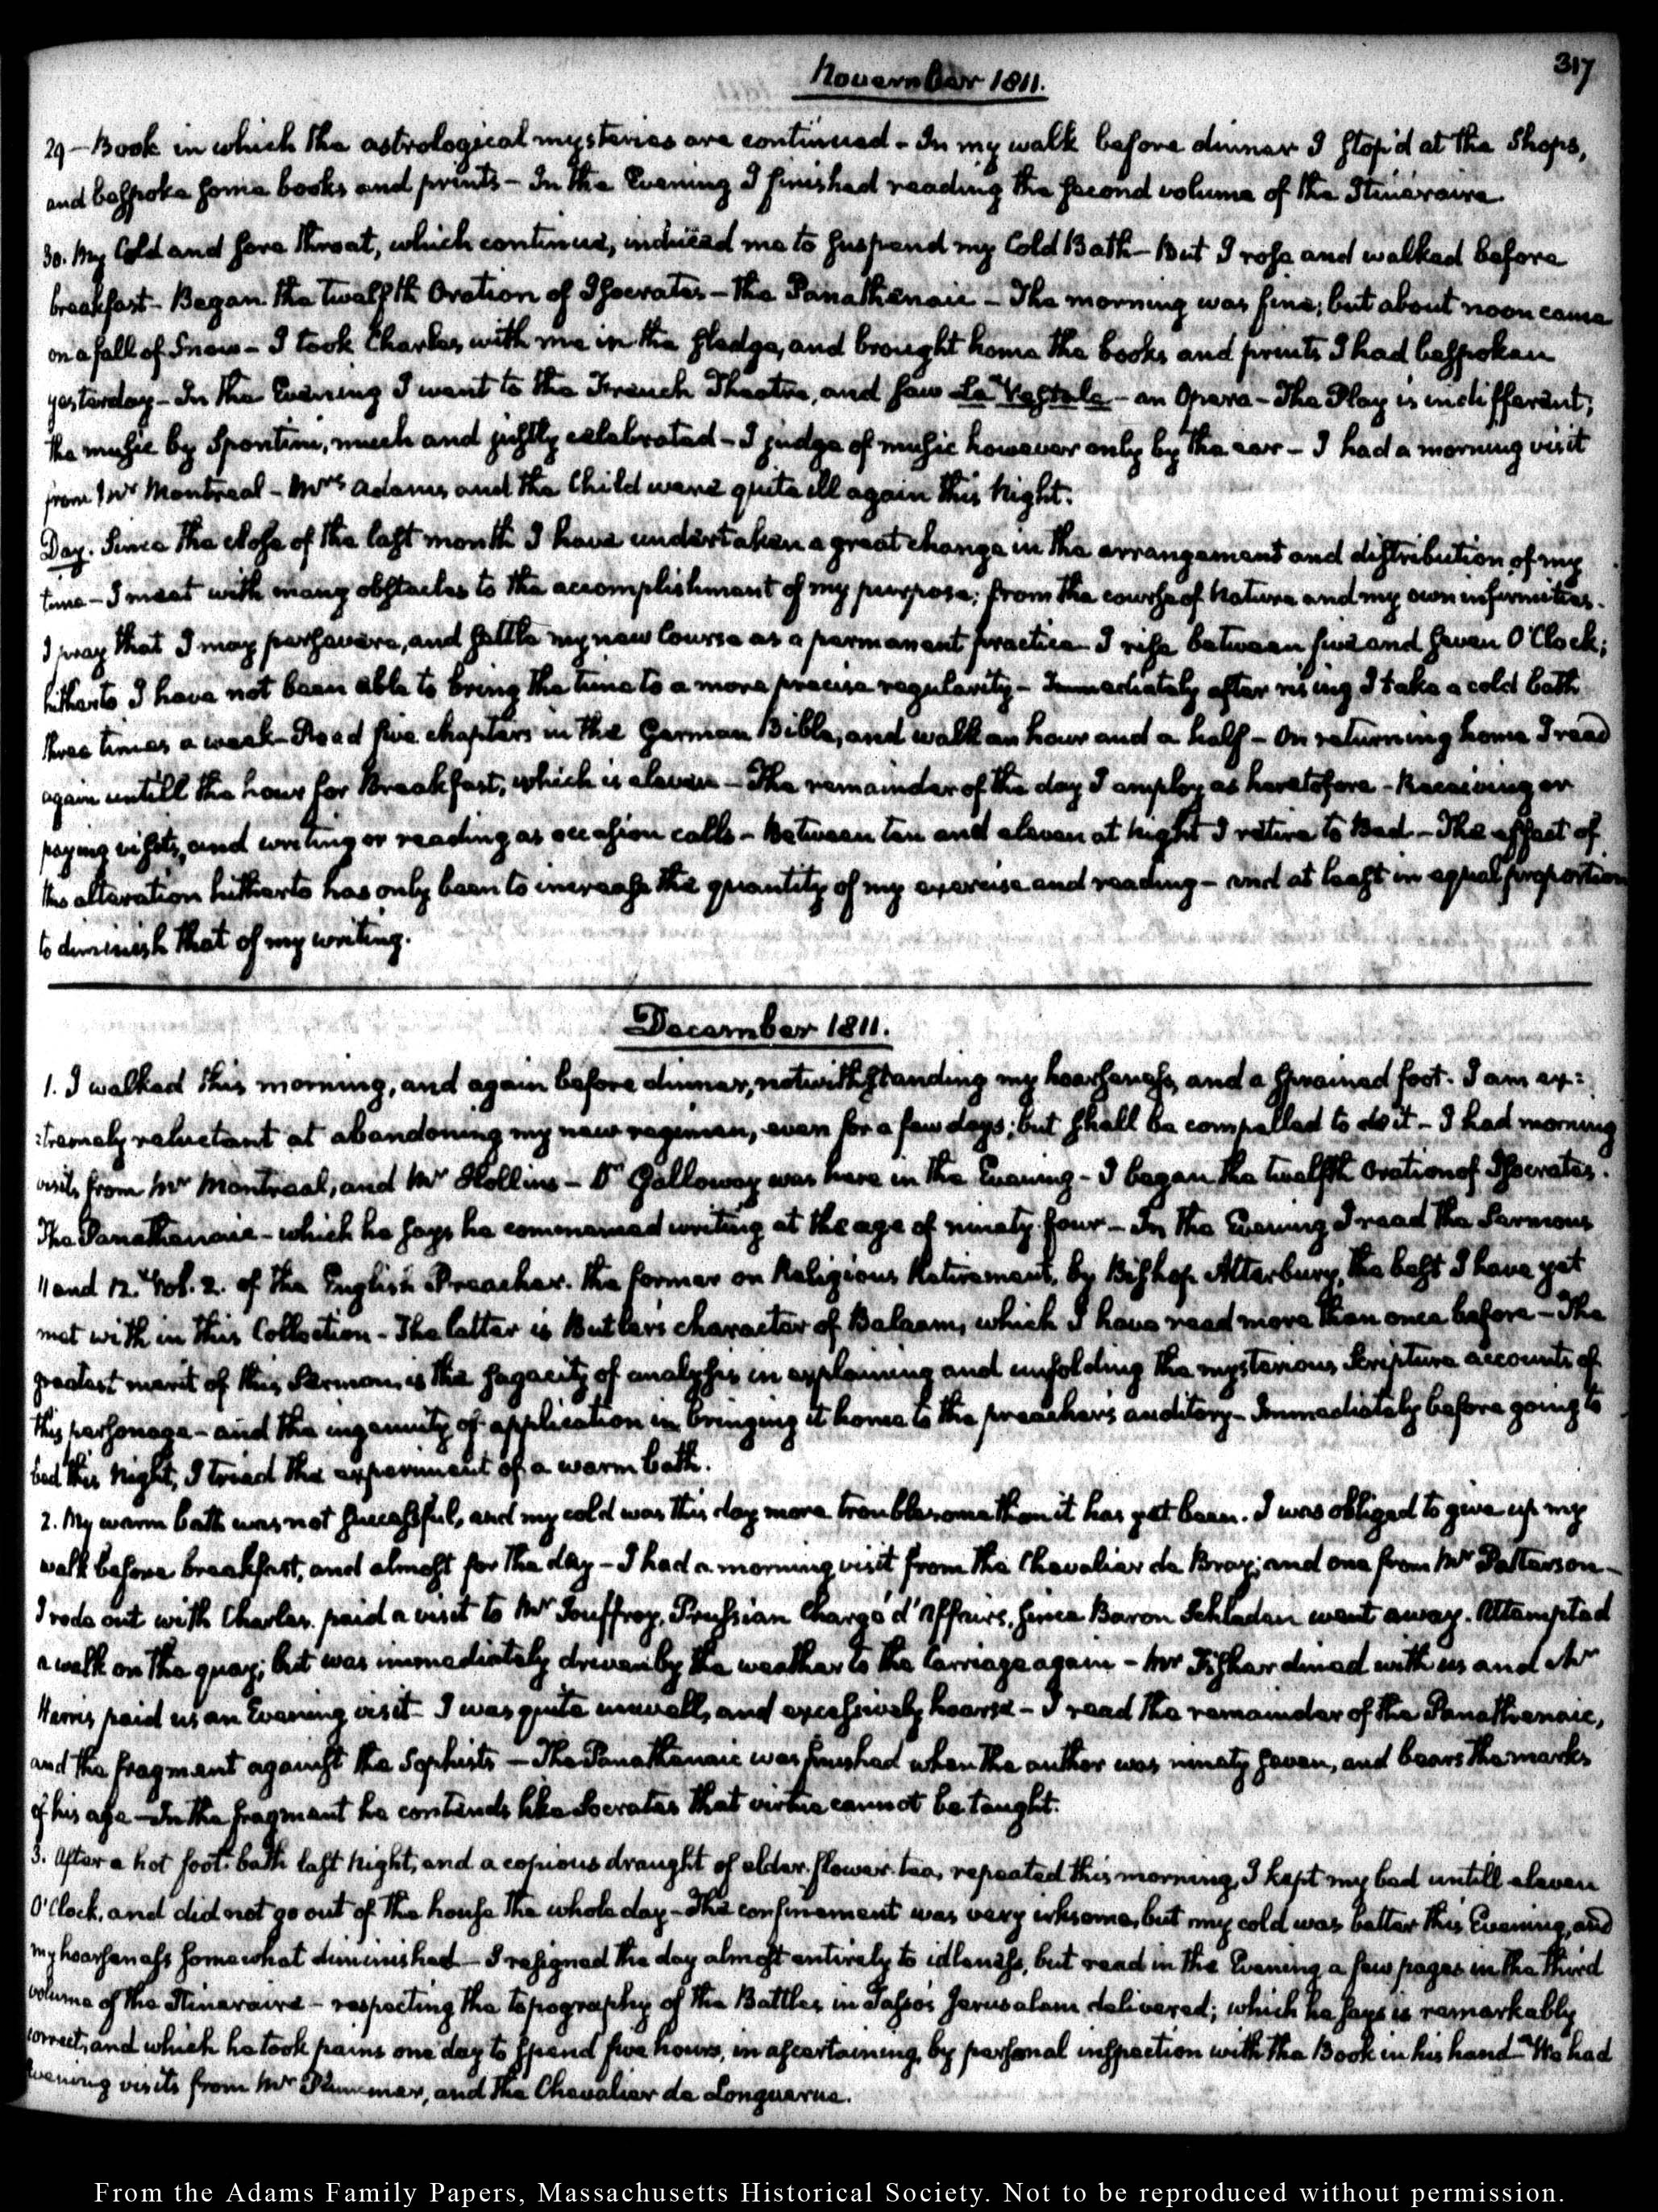 317
November 1811.
29 - Book in which the astrological mysteries are continued - In my walk before dinner I stop'd at the Shops,
and bespoke some books and prints - In the Evening I finished reading the second volume of the Itineraire.
30. My Cold and sore throat, which continue, induced me to suspend my Cold Bath - But I rose and walked before
breakfast - Began the twelfth Oration of Isocrates - the Panathenaic - The morning was fine; but about noon came
on a fall of Snow - I took Charles with me in the sledge, and brought home the books and prints I had bespoken
yesterday - In the Evening I went to the French Theatre, and saw La Vestale - an Opera - The Play is indifferent;
the music by Spontini, much and justly celebrated - I judge of music however only by the ear - I had a morning visit
from Mr Montreal - Mrs Adams and the Child were quite ill again this Night.
Day. Since the close of the last month I have undertaken a great change in the arrangement and distribution of my
time - I meet with many obstacles to the accomplishment of my purpose; from the course of Nature and my own infirmities.
I pray that I may persevere, and settle my new Course as a permanent practice - I rise between five and seven O'Clock;
hitherto I have not been able to bring the time to a more precise regularity - Immediately after rising I take a cold bath
three times a week - Read five chapters in the German Bible, and walk an hour and a half - On returning home I read
again untill the hour for Breakfast, which is eleven - The remainder of the day I employ as heretofore - Receiving or
paying visits, and writing or reading as occasion calls - Between ten and eleven at Night I retire to Bed - The effect of
this alteration hitherto has only been to increase the quantity of my exercise and reading - and at least in equal proportion
to diminish that of my writing.
December 1811.
1. I walked this morning, and again before dinner, notwithstanding my hoarseness, and a sprained foot. I am ex=
=tremely reluctant at abandoning my new regimen, even for a few days; but shall be compelled to do it - I had morning
visits from Mr Montreal, and Mr Hollins - Dr Galloway was here in the Evening - I began the twelfth Oration of Isocrates.
The Panathenaic - which he says he commenced writing at the age of ninety four - In the Evening I read the Sermons
11 and 12. Vol. 2. of the English Preacher. The former on Religious Retirement, by Bishop Atterbury, the best I have yet
met with in this Collection - The latter is Butler's character of Balaam, which I have read more than once before - The
greatest merit of this Sermon, is the sagacity of analysis in explaining and unfolding the mysterious Scripture accounts of
this personage - and the ingenuity of application in bringing it home to the preacher's auditory - Immediately before going to
bed this Night, I tried the experiment of a warm bath.
2. My warm bath was not successful, and my cold was this day more troublesome than it has yet been. I was obliged to give up my
walk before breakfast, and almost for the day - I had a morning visit from the Chevalier de Bray; and one from Mr Patterson -
I rode out with Charles. paid a visit to Mr Jouffroy, Prussian Chargé d'Affairs, since Baron Schladen went away. Attempted
a walk on the quay; but was immediately driven by the weather to the Carriage again - Mr Fisher dined with us and Mr
Harris paid us an Evening visit - I was quite unwell, and excessively hoarse - I read the remainder of the Panathenaic,
and the fragment against the Sophists - The Panathenaic was finished when the author was ninety seven, and bears the marks
of his age - In the fragment he contends like Socrates that virtue cannot be taught.
3. After a hot foot-bath last Night, and a copious draught of elder-flower-tea, repeated this morning, I kept my bed untill eleven
O'Clock, and did not go out of the house the whole day - The confinement was very irksome, but my cold was better this Evening, and
my hoarseness somewhat diminished - I resigned the day almost entirely to idleness, but read in the Evening a few pages in the third
volume of the Itineraire - respecting the topography of the Battles in Tasso's Jerusalem delivered; which he says is remarkably
correct, and which he took pains one day to spend five hours, in ascertaining, by personal inspection with the Book in his hand - We had
evening visits from Mr Plummer, and the Chevalier de Longuerue.
From the Adams Family Papers, Massachusetts Historical Society. Not to be reproduced without permission.